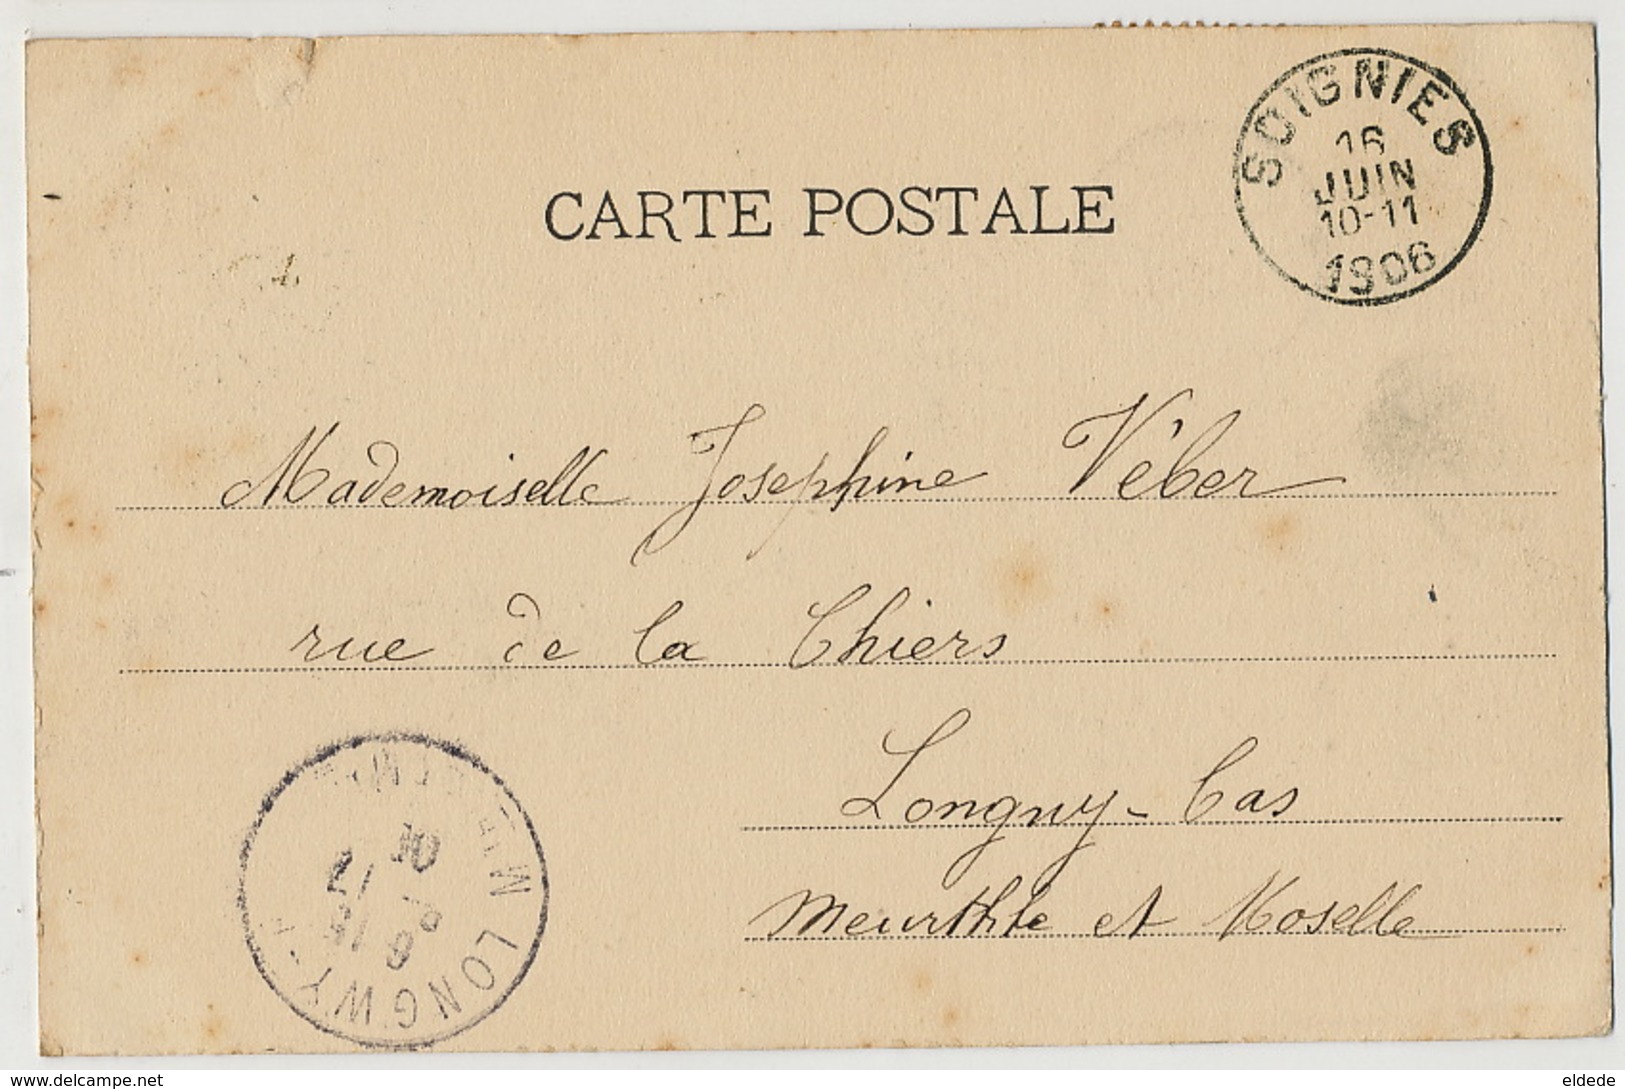 SOIGNIES
16
JUIN
10-11
1906
CARTE POSTALE
Mademoiselle Josephine Véber
rue de la Chiers
Longwy-bas
Meurthhe et Moselle
LONGWY
delcampe.net
eldede